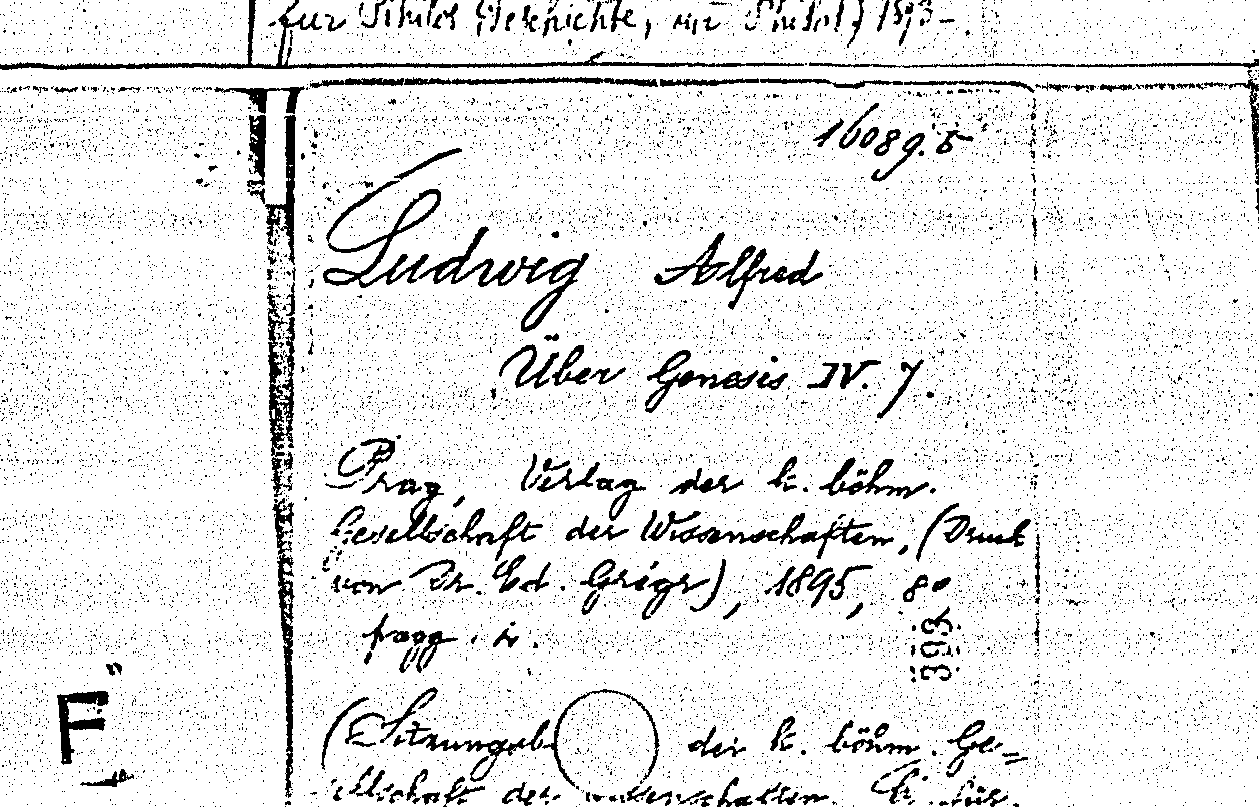 für Philos Geschichte, und Philol) 1893-
16089.5
Ludwig Alfred
Über Genesis IV. 7.
Prag, Verlag der k. böhm.
Gesellschaft der Wissenschaften, (Druck
von Dr. Ed. Grégr), 1895, 8°
pagg. i.
393
(Sitzungsb der k. böhm. Ge-
sellschaft der Wissenschaften. für
F